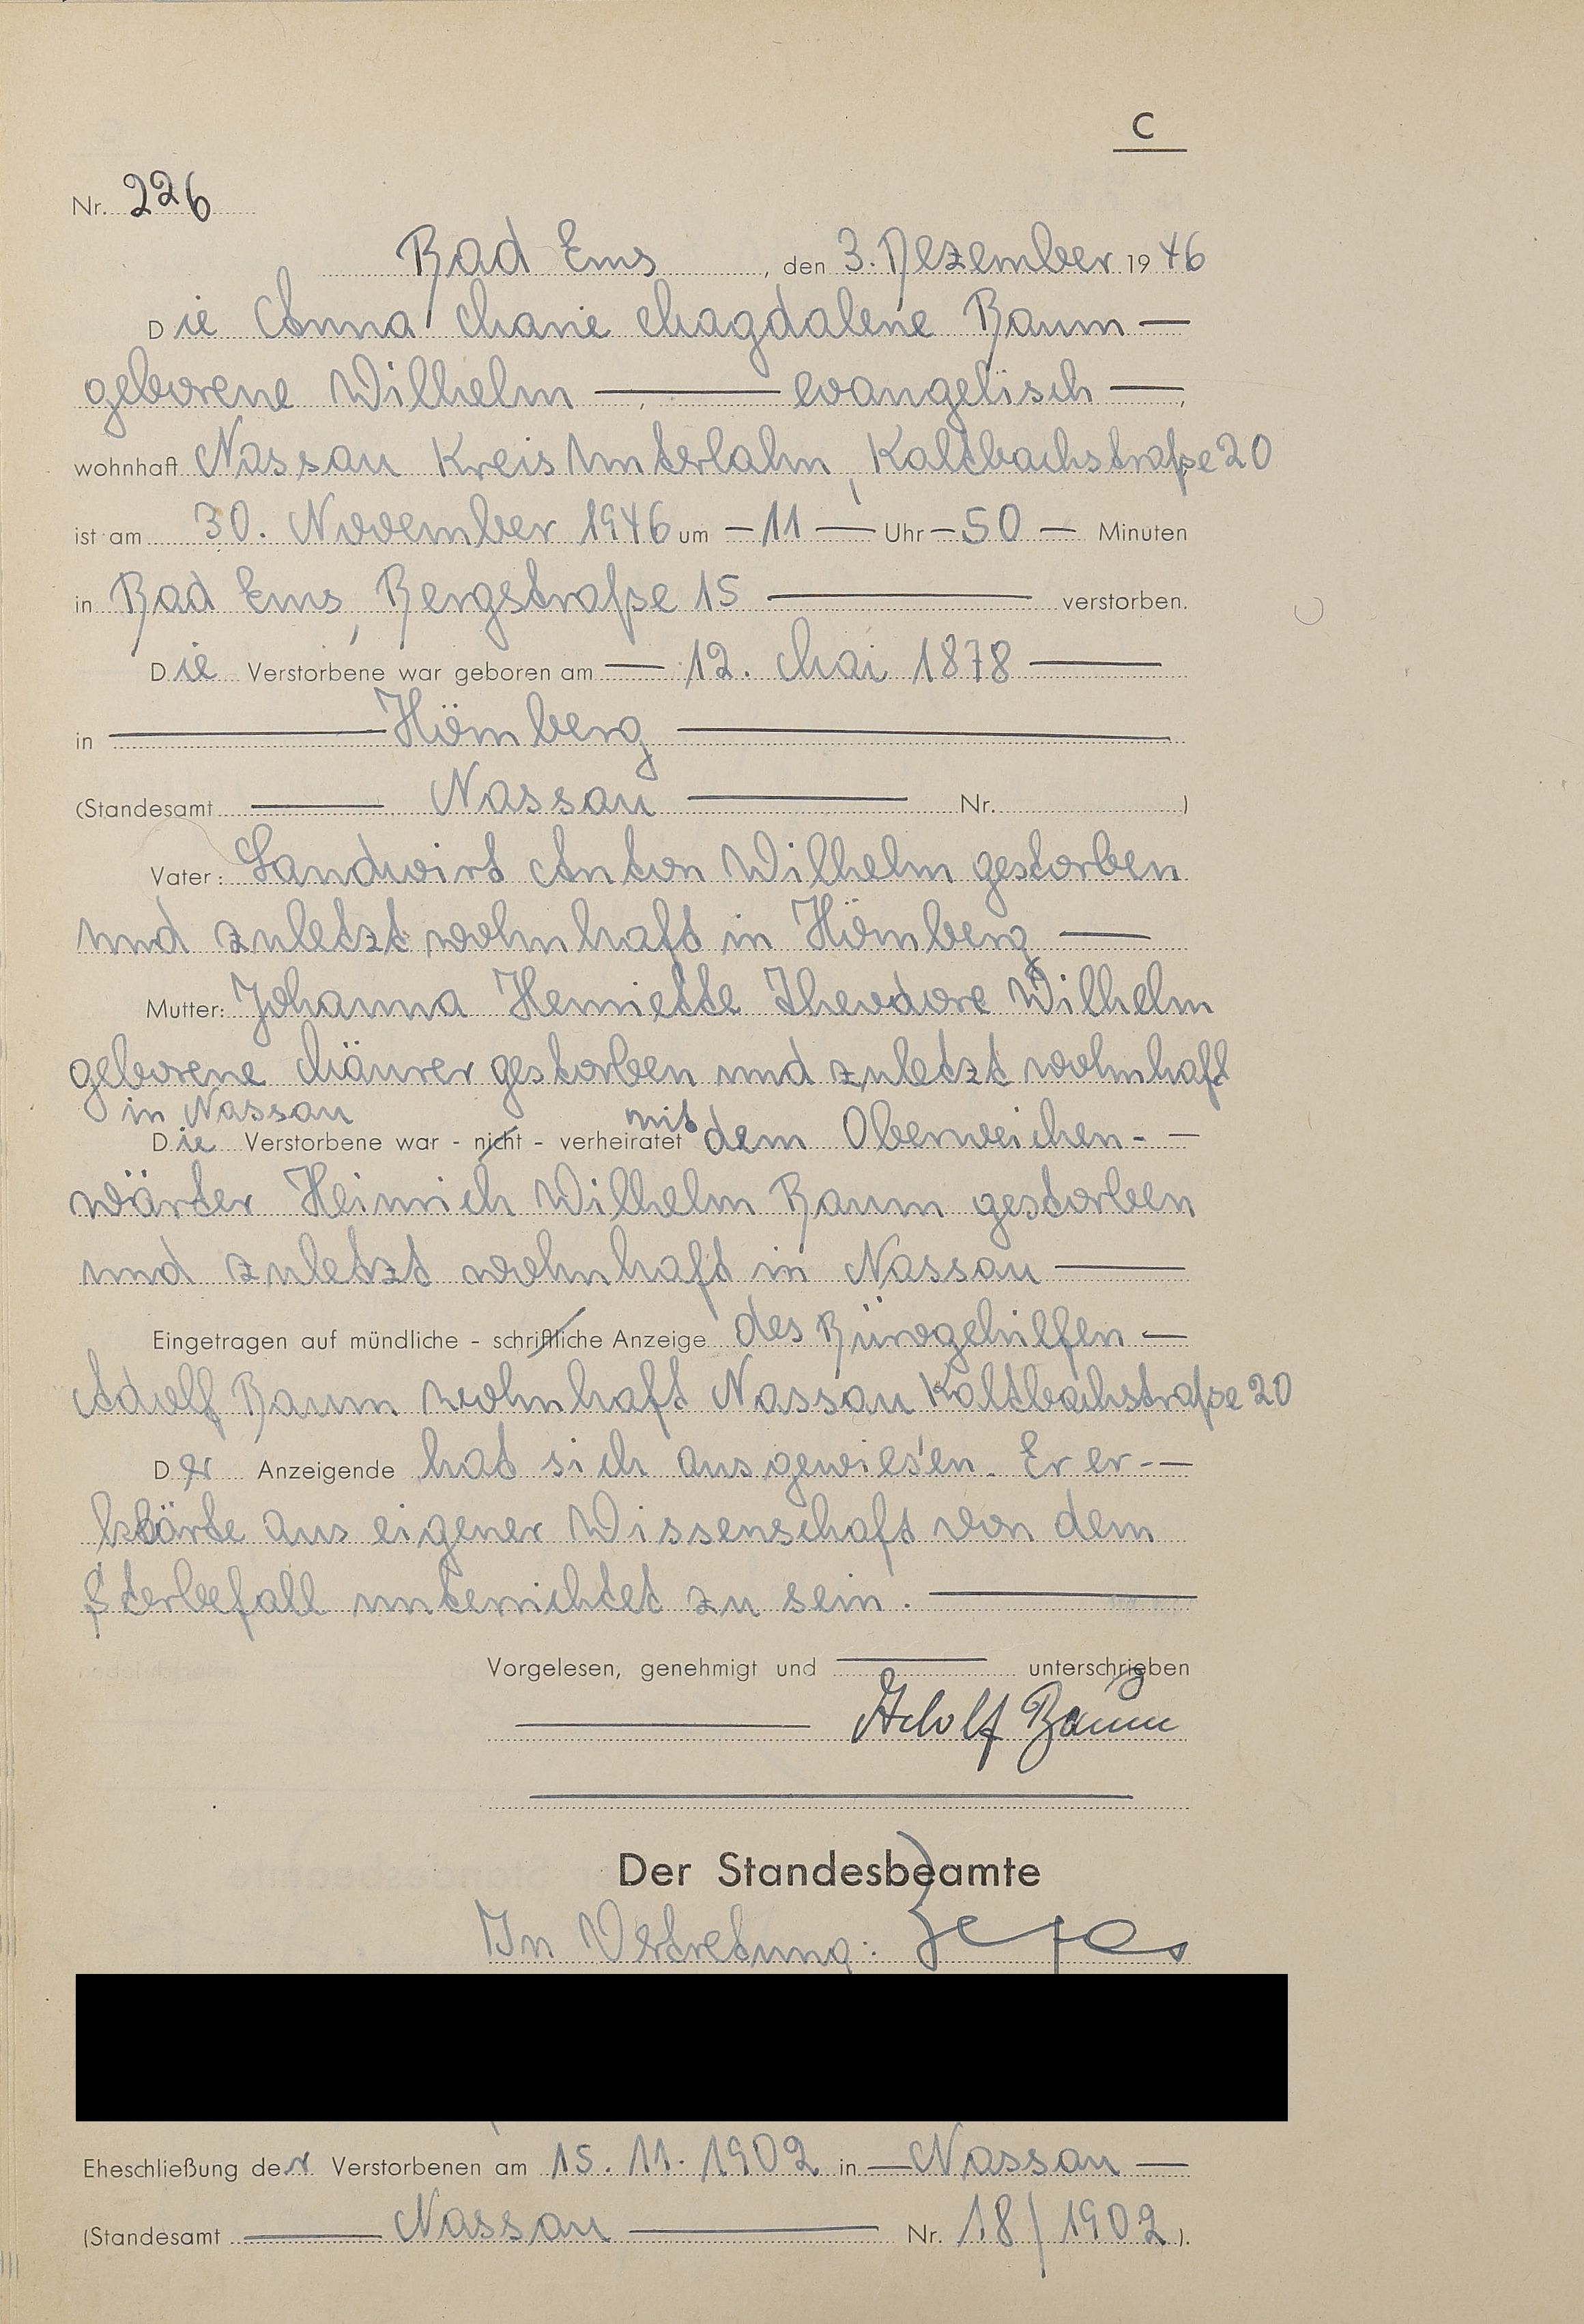 C
Nr. 226
Bad Ems, den 3. Dezember 1946
Die Anna Marie Magdalene Baum —
geborene Wilhelm — evangelisch —,
wohnhaft Nassau Kreis Unterlahn, Kaltbachstraße 20
ist am 30. November 1946 um — 11 — Uhr — 50 — Minuten
in Bad Ems, Bergstraße 15 — verstorben.
Die Verstorbene war geboren am — 12. Mai 1878 —
in — Hömberg —
(Standesamt — Nassau — Nr. )
Vater: Landwirt Anton Wilhelm gestorben
und zuletzt wohnhaft in Hömberg —
Mutter: Johanna Henriette Theodore Wilhelm
geborene Mäurer gestorben und zuletzt wohnhaft
in Nassau
Die Verstorbene war - nicht - verheiratet mit dem Oberweichen- —
wärter Heinrich Wilhelm Baum gestorben
und zuletzt wohnhaft in Nassau —
Eingetragen auf mündliche - schriftliche Anzeige des Bürogehilfen —
Adolf Baum wohnhaft Nassau Kaltbachstraße 20
Der Anzeigende hat sich ausgewiesen. Er er- —
klärte aus eigener Wissenschaft von dem
Sterbefall unterrichtet zu sein. —
Vorgelesen, genehmigt und — unterschrieben
— Adolf Baum
Der Standesbeamte
In Vertretung:
Eheschließung der Verstorbenen am 15.11.1902 in — Nassau —
(Standesamt — Nassau — Nr. 18/1902).